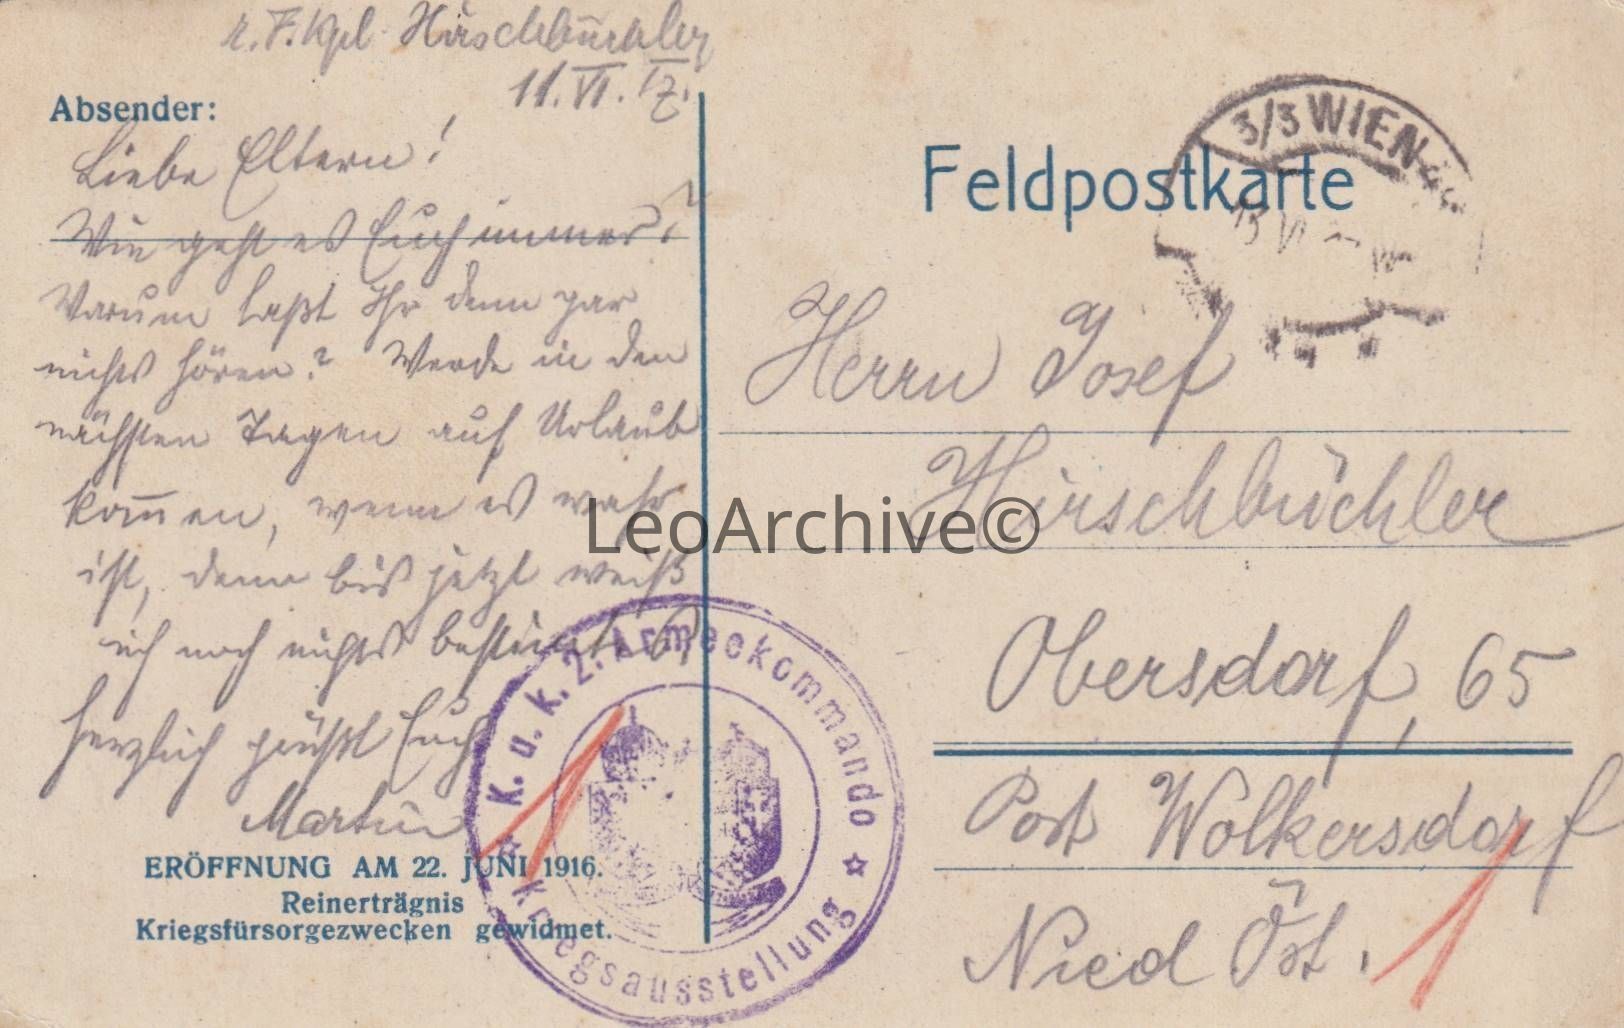 r. F. Kpl. Hirschbüchler
11.VI.17.
Absender:
Liebe Eltern!
Wie geht es Euch immer?
Warum laßt Ihr denn gar
nichts hören? Werde in den
nächsten Tagen auf Urlaub
kom̅en, wenn es wahr
ist, denn bis jetzt weiß
ich noch nichts
Herzlich grüßt Euch
Martin
ERÖFFNUNG AM 22. JUNI 1916.
Reinerträgnis
Kriegsfürsorgezwecken gewidmet.
K. u. k. 2. Armeekommando
Kriegsausstellung
3/3 WIEN
13 VI
Feldpostkarte
Herrn Josef
Hirschbüchler
LeoArchive©
Obersdorf, 65
Post Wolkersdorf
Nied Öst.